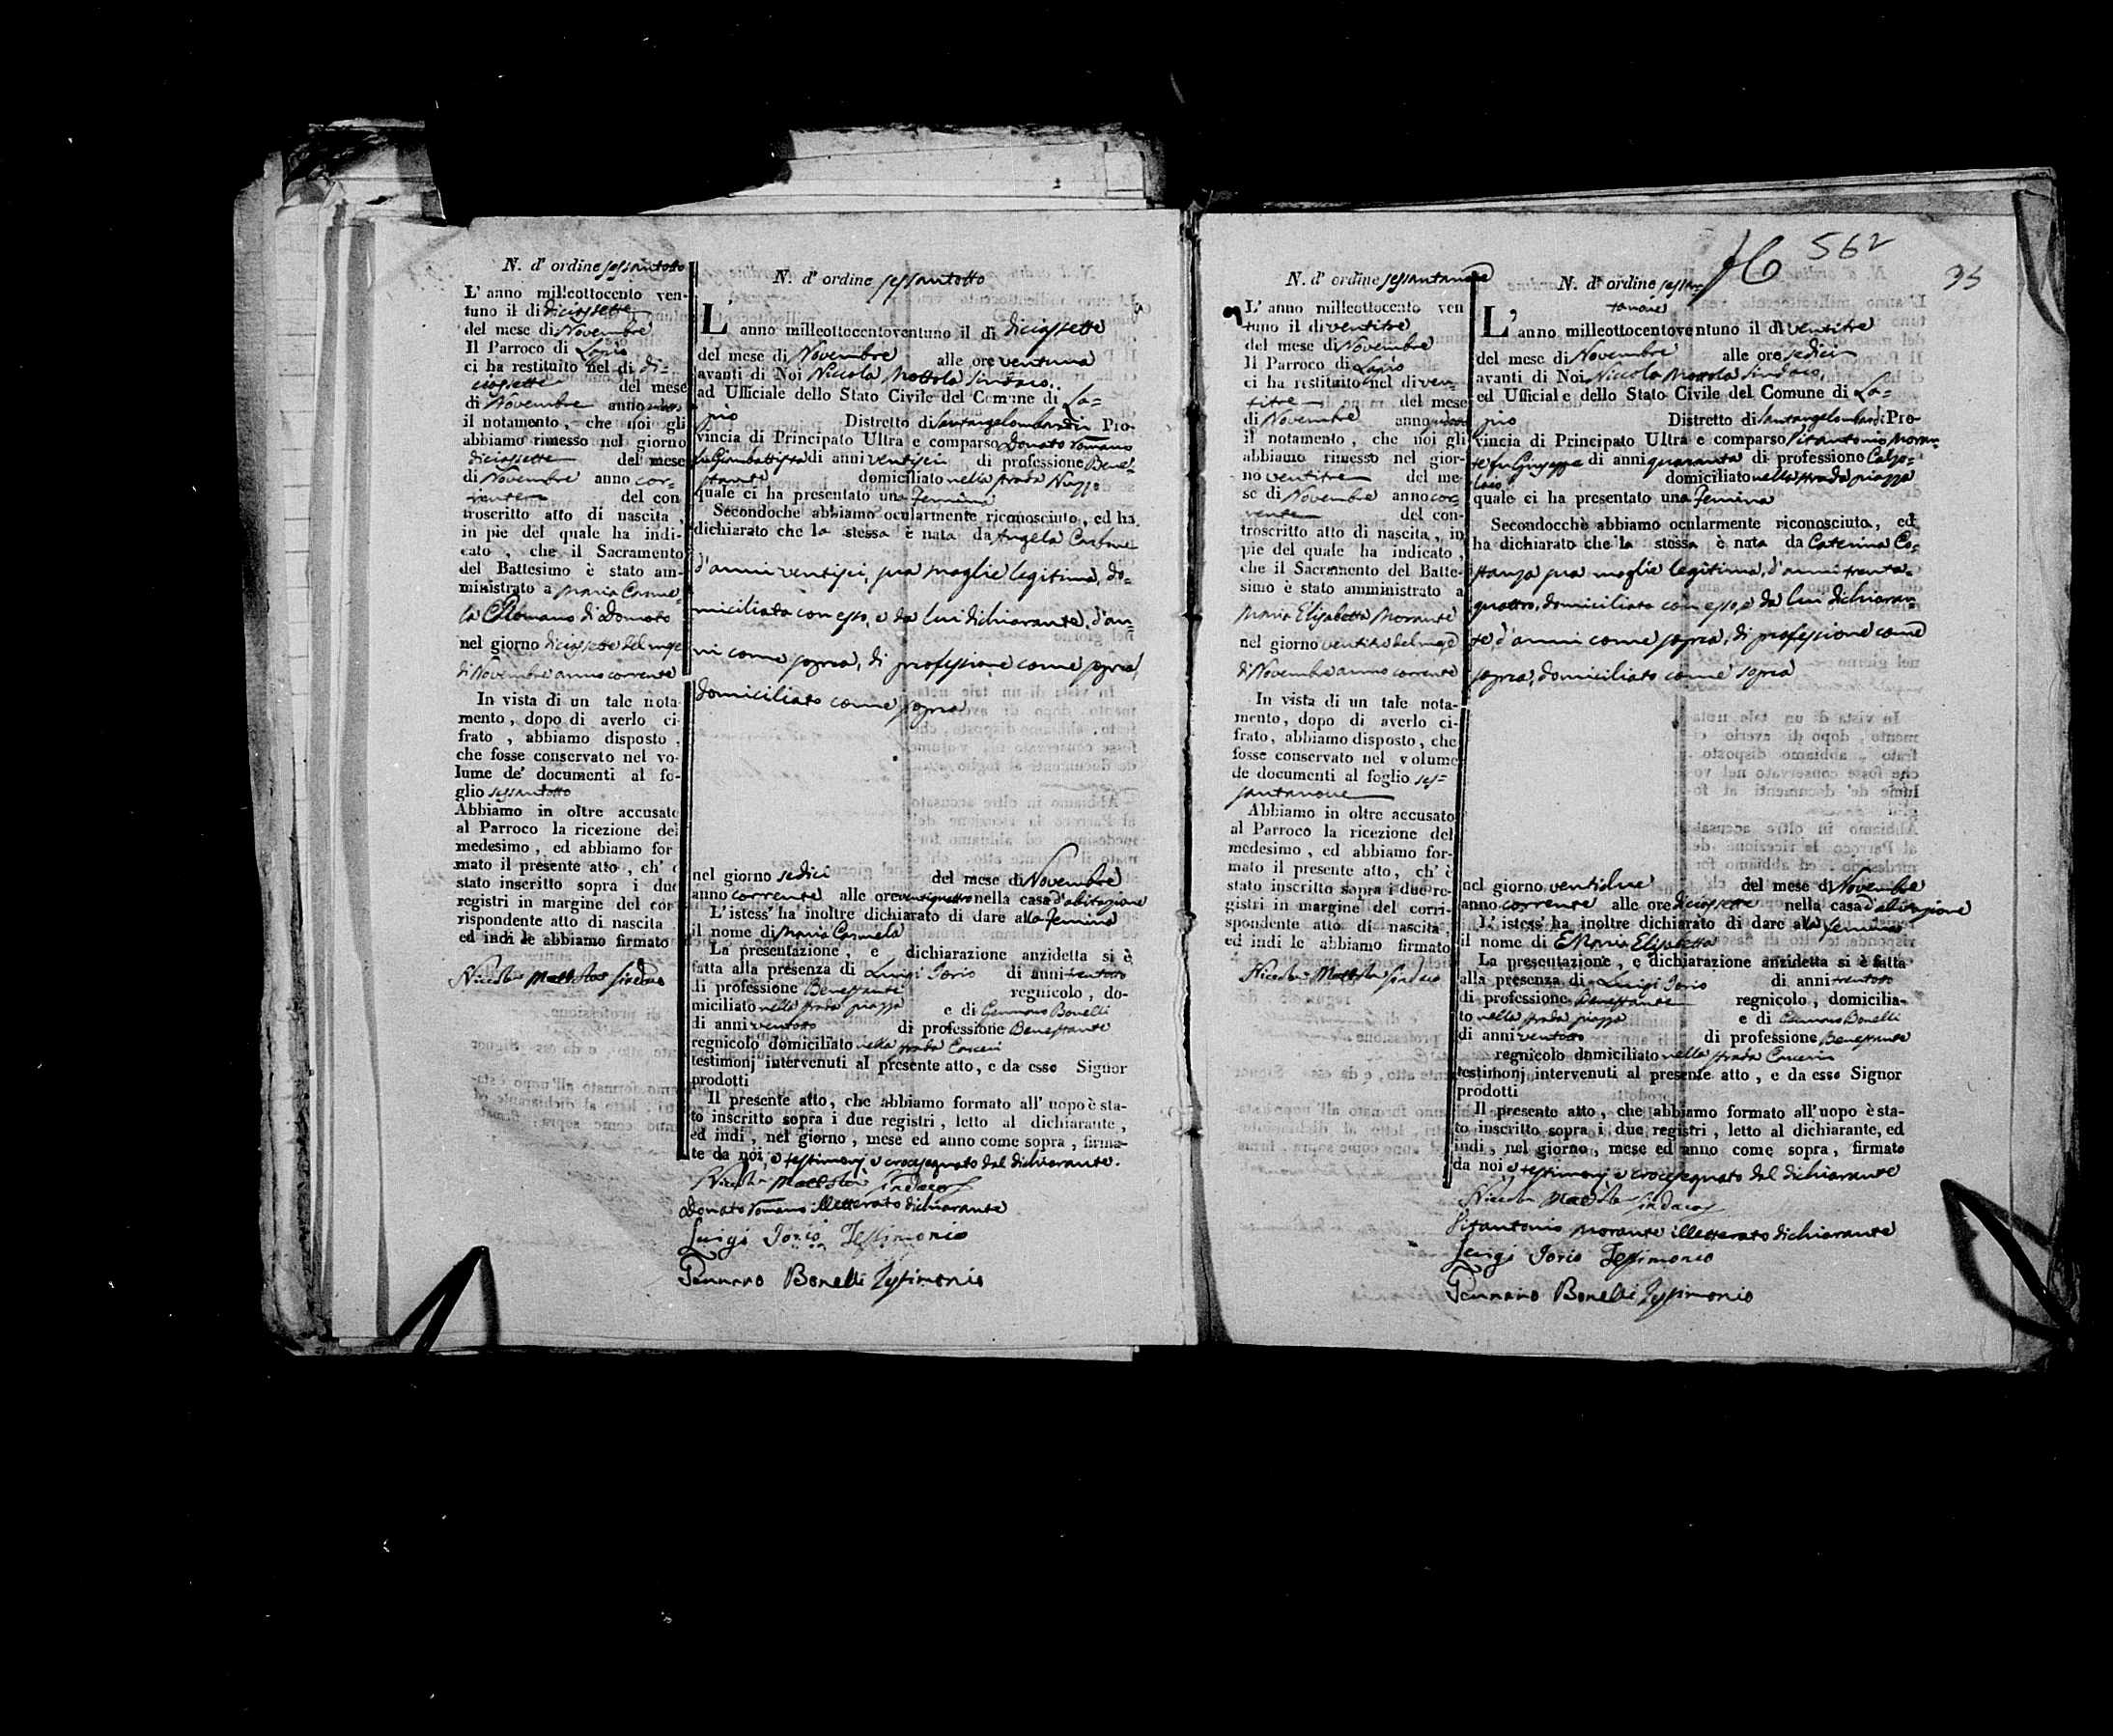 N. d' ordine sessantotto
L' anno milleottocento ven-
tuno il di diciassette
del mese di Novembre
Il Parroco di Lapio
ci ha restituito nel di di=
ciassette del mese
di Novembre anno
il notamento, che noi gli
abbiamo rimesso nel giorno
diciassette del mese
di Novembre anno cor=
rente del con
troscritto atto di nascita,
in pie del quale ha indi-
cato, che il Sacramento
del Battesimo è stato am-
ministrato a Maria Carme=
la Romano di Donato
nel giorno diciassette del mese
di Novembre anno corrente
In vista di un tale nota
mento, dopo di averlo ci-
frato, abbiamo disposto,
che fosse conservato nel vo-
lume de' documenti al fo-
glio sessantotto
Abbiamo in oltre accusato
al Parroco la ricezione del
medesimo, ed abbiamo for
mato il presente atto, ch' è
stato inscritto sopra i due
registri in margine del cor
rispondente atto di nascita
ed indi le abbiamo firmato
Niccola Mottola Sindaco
N. d' ordine sessantotto
L' anno milleottocentoventuno il di diciassette
del mese di Novembre alle ore ventuna
avanti di Noi Niccola Mottola Sindaco,
ad Ufficiale dello Stato Civile del Comune di La=
pio Distretto di Santangelolombardi Pro-
vincia di Principato Ultra e comparso Donato Romano
fu Giambattista di anni ventisei di professione Bene=
stante domiciliato nella strada Nuzzo
quale ci ha presentato una Femina
Secondoche abbiamo ocularmente riconosciuto, ed ha
dichiarato che la stessa è nata da Angela Carbone
d'anni ventisei, sua moglie legitima, do=
miciliata con esso, e da lui dichiarante, d'an=
ni come sopra, di professione come sopra,
domiciliato come sopra
nel giorno sedici del mese di Novembre
anno corrente alle ore ventiquattro nella casa d'abitazione
L' istess' ha inoltre dichiarato di dare alla Femina
il nome di Maria Carmela
La presentazione, e dichiarazione anzidetta si è
fatta alla presenza di Luigi Iorio di anni trentotto
di professione Benestante regnicolo, do-
miciliato nella strada piazza e di Gennaro Bonelli
di anni ventotto di professione Benestante
regnicolo domiciliato nella strada
testimonj intervenuti al presente atto, e da esso Signor
prodotti
Il presente atto, che abbiamo formato all' uopo è sta-
to inscritto sopra i due registri, letto al dichiarante,
ed indi, nel giorno, mese ed anno come sopra, firma-
te da noi, e testimonj, e crocesegnato dal dichiarante.
Niccola Mottola Sindaco
Donato Romano illetterato dichiarante
Luigi Iorio Testimonio
Gennaro Bonelli Testimonio
N. d' ordine sessantanove
L' anno milleottocento ven
tuno il di ventitre
del mese di Novembre
Il Parroco di Lapio
ci ha restituito nel di ven=
titre del mese
di Novembre anno
il notamento, che noi gli
abbiamo rimesso nel gior-
no ventitre del me-
se di Novembre anno cor=
rente del con-
troscritto atto di nascita, in
pie del quale ha indicato,
che il Sacramento del Batte-
simo è stato amministrato a
Maria Elisabetta Morante
nel giorno ventitre del mese
di Novembre anno corrente
In vista di un tale nota-
mento, dopo di averlo ci-
frato, abbiamo disposto, che
fosse conservato nel volume
de documenti al foglio ses=
santanove
Abbiamo in oltre accusato
al Parroco la ricezione del
medesimo, ed abbiamo for-
mato il presente atto, ch' è
stato inscritto sopra i due re-
gistri in margine del corri-
spondente atto di nascita,
ed indi le abbiamo firmato
Niccola Mottola Sindaco
562
35
N. d' ordine sessan
tanove
L' anno milleottocentoventuno il di ventitre
del mese di Novembre alle ore sedici
avanti di Noi Niccola Mottola Sindaco,
ed Ufficiale dello Stato Civile del Comune di La=
pio Distretto di Santangelolombardi Pro-
vincia di Principato Ultra e comparso Vitantonio Moran=
te fu Giuseppe di anni quaranta di professione Calzo=
laio domiciliato nella strada piazza
quale ci ha presentato una Femina
Secondocchè abbiamo ocularmente riconosciuto, ed
ha dichiarato che la stessa è nata da Caterina Co=
stanza sua moglie legitima, d'anni trenta=
quattro, domiciliata con esso, e da lui dichiaran=
te, d'anni come sopra, di professione come
sopra, domiciliato come sopra
nel giorno ventidue del mese di Novembre
anno corrente alle ore diciassette nella casa d'abitazione
L' istess' ha inoltre dichiarato di dare alla femina
il nome di Maria Elisabetta
La presentazione, e dichiarazione anzidetta si è fatta
alla presenza di Luigi Iorio di anni trentotto
di professione Benestante regnicolo, domicilia-
to nella strada piazza e di Gennaro Bonelli
di anni ventotto di professione Benestante
regnicolo domiciliato nella strada
testimonj intervenuti al presente atto, e da esso Signor
prodotti
Il presente atto, che abbiamo formato all' uopo è sta-
to inscritto sopra i due registri, letto al dichiarante, ed
indi, nel giorno, mese ed anno come sopra, firmato
da noi, e testimonj, e crocesegnato dal dichiarante
Niccola Mottola Sindaco
Vitantonio Morante illetterato dichiarante
Luigi Iorio Testimonio
Gennaro Bonelli Testimonio